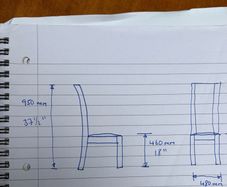 950 mm
37½"
460 mm
18"
480 mm